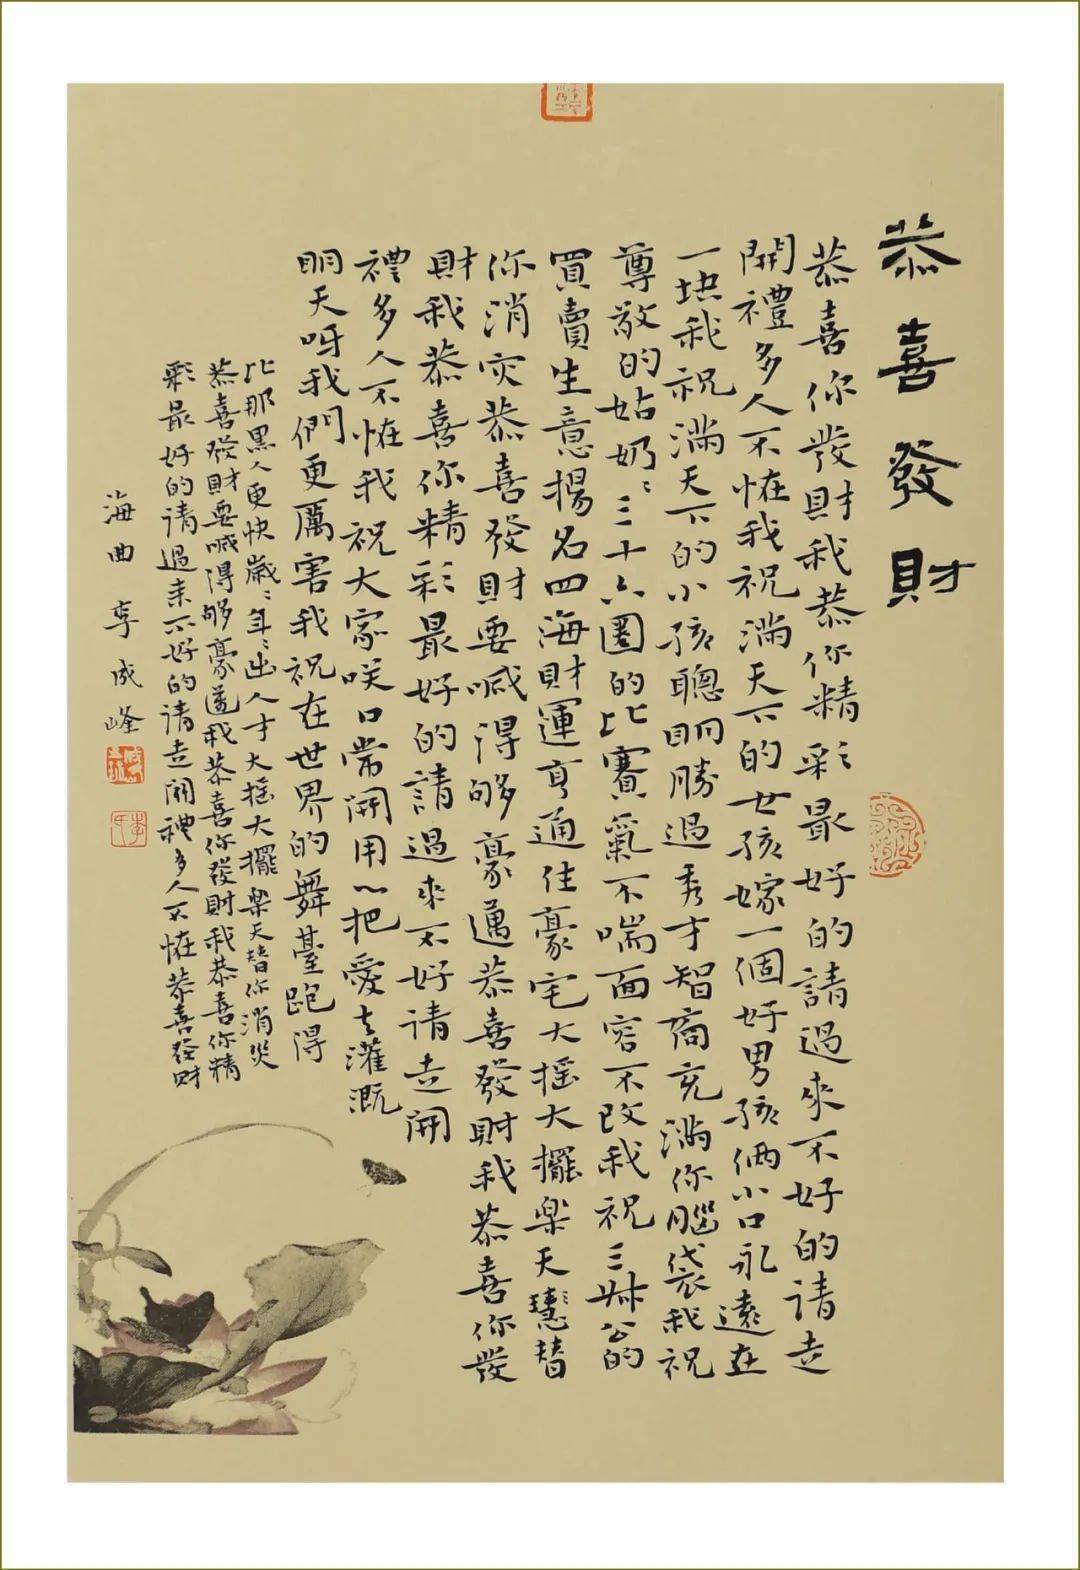 恭喜發財
恭喜你發財我恭你精彩最好的請過來不好的请走
開禮多人不怪我祝滿天下的女孩嫁一個好男孩俩小口永遠在
一块我祝滿天下的小孩聰明勝過秀才智商充滿你腦袋我祝
尊敬的姑奶〻三十六圈的比賽氣不喘面容不改我祝三叔公的
買賣生意揚名四海財運亨通住豪宅大摇大擺樂天替
你消灾恭喜發財要喊得够豪邁恭喜發財我恭喜你發
財我恭喜你精彩最好的請過來不好请走開
禮多人不怪我祝大家咲口常開用心把愛去灌溉
明天呀我們更厲害我祝在世界的舞臺跑得
比那黑人更快歲〻年〻出人才大摇大擺樂天替你消災
恭喜發財要喊得够豪邁我恭喜你發財我恭喜你精
彩最好的请過来不好的请走開禮多人不怪恭喜發財
海曲 李成峰